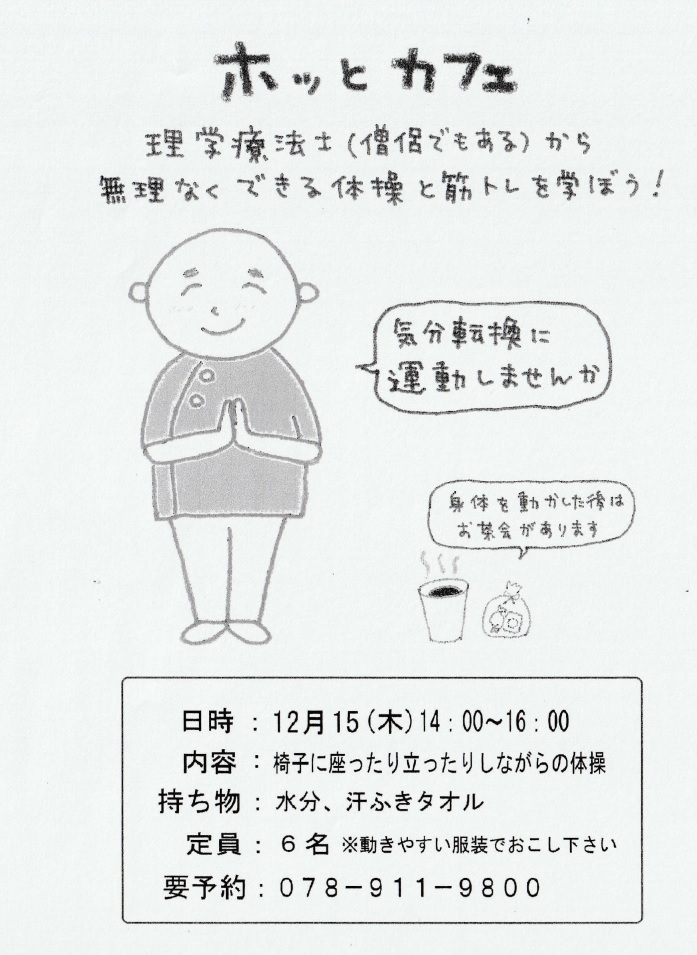 ホッと カフェ
理学療法士(僧侶でもある)から
無理なくできる体操と筋トレを学ぼう!
気分転換に
運動しませんか
身体を動かした後は
お茶会があります
日時 : 12月15(木)14:00~16:00
内容 : 椅子に座ったり立ったりしながらの体操
持ち物 : 水分、汗ふきタオル
定員 : 6名 ※動きやすい服装でおこし下さい
要予約 : 078-911-9800